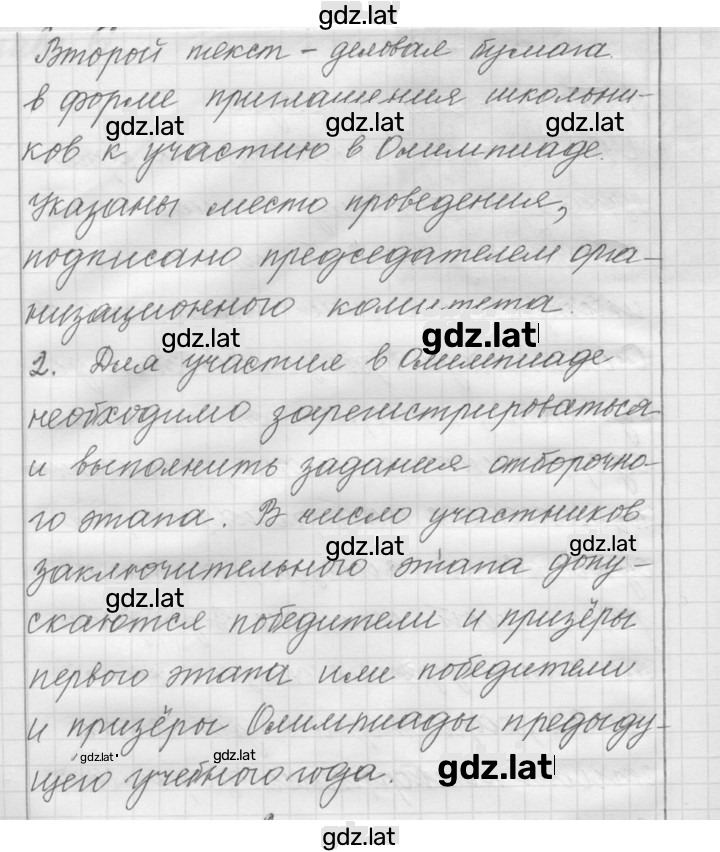 gdz.lat
Второй текст – деловая бумага
в форме приглашения школьни-
gdz.lat gdz.lat gdz.lat
ков к участию в Олимпиаде.
Указаны место проведения,
подписано председателем орга-
низационного комитета.
gdz.lat gdz.lat
2. Для участия в Олимпиаде
необходимо зарегистрироваться
и выполнить задания отборочно-
го этапа. В число участников
gdz.lat gdz.lat
заключительного этапа допу-
gdz.lat
скаются победители и призёры
первого этапа или победители
и призёры Олимпиады предыду-
gdz.lat gdz.lat gdz.lat
щего учебного года.
gdz.lat